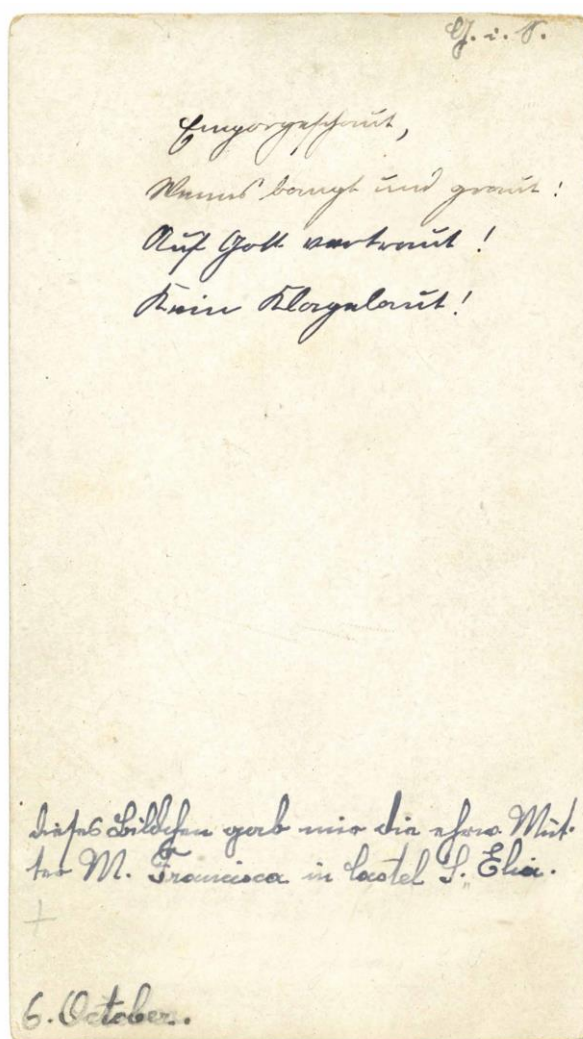 G. i. S.
Emporgeschaut,
Wenns bangt und graut!
Auf Gott vertraut!
Kein Klagelaut!
dieses Bildchen gab mir die ehrw. Mut-
ter M. Francisca in Castel S. Elia.
6. October.